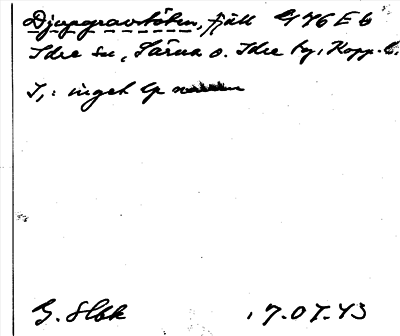 Djupgravstöten, fjäll G 76 E b
Idre sn, Särna o. Idre tg, Kopp. l.
I, : inget lp
G. Slbk 17.07.43